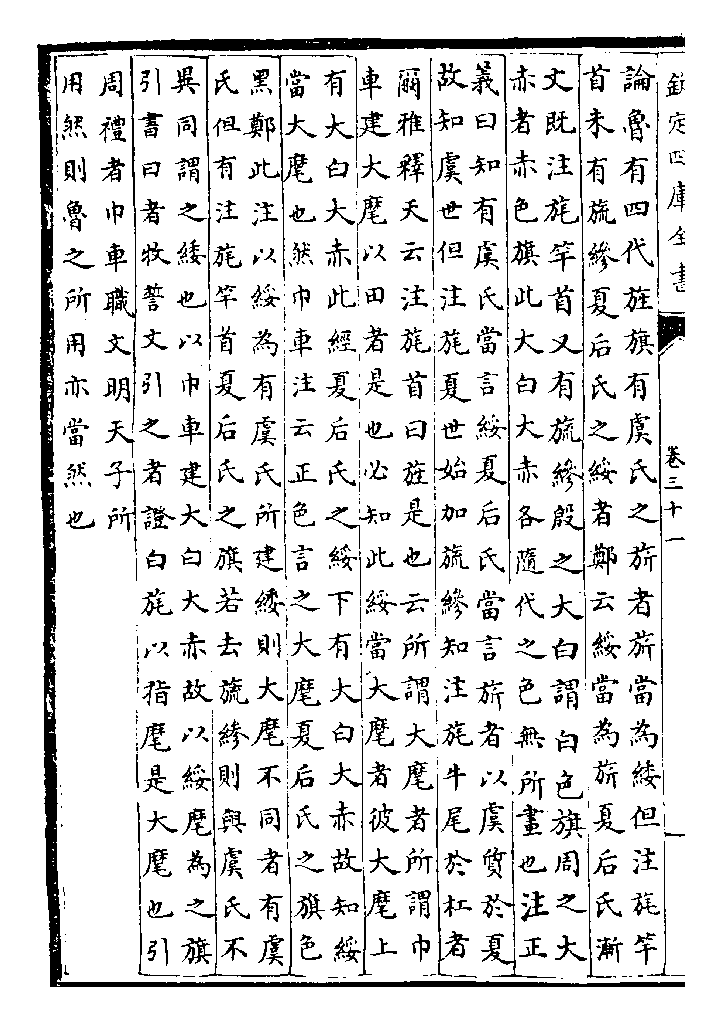 欽定四庫全書
卷三十一
論魯有四代旌旗有虞氏之旂者旂當為緌但注旄竿
首未有旒縿夏后氏之綏者鄭云綏當為旂夏后氏漸
文既注旄竿首又有旒縿殷之大白謂白色旗周之大
赤者赤色旗此大白大赤各隨代之色無所畫也注正
義曰知有虞氏當言綏夏后氏當言旂者以虞質於夏
故知虞世但注旄夏世始加旒縿知注旄牛尾於杠者
爾雅釋天云注旄首曰旌是也云所謂大麾者所謂巾
車建大麾以田者是也必知此綏當大麾者彼大麾上
有大白大赤此經夏后氏之綏下有大白大赤故知綏
當大麾也然巾車注云正色言之大麾夏后氏之旗色
黑鄭此注以綏為有虞氏所建緌則大麾不同者有虞
氏但有注旄竿首夏后氏之旗若去旒縿則與虞氏不
異同謂之緌也以巾車建大白大赤故以綏麾為之旗
引書曰者牧誓文引之者證白旄以指麾是大麾也引
周禮者巾車職文明天子所
用然則魯之所用亦當然也